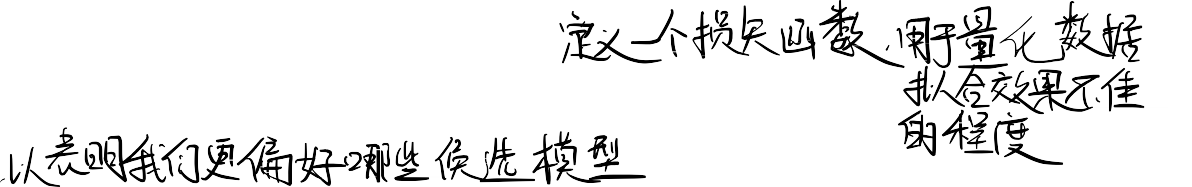 定义一个损失函数,用于量化数据
拟合效果不佳
的程度
以表明我们更偏好哪些候选模型